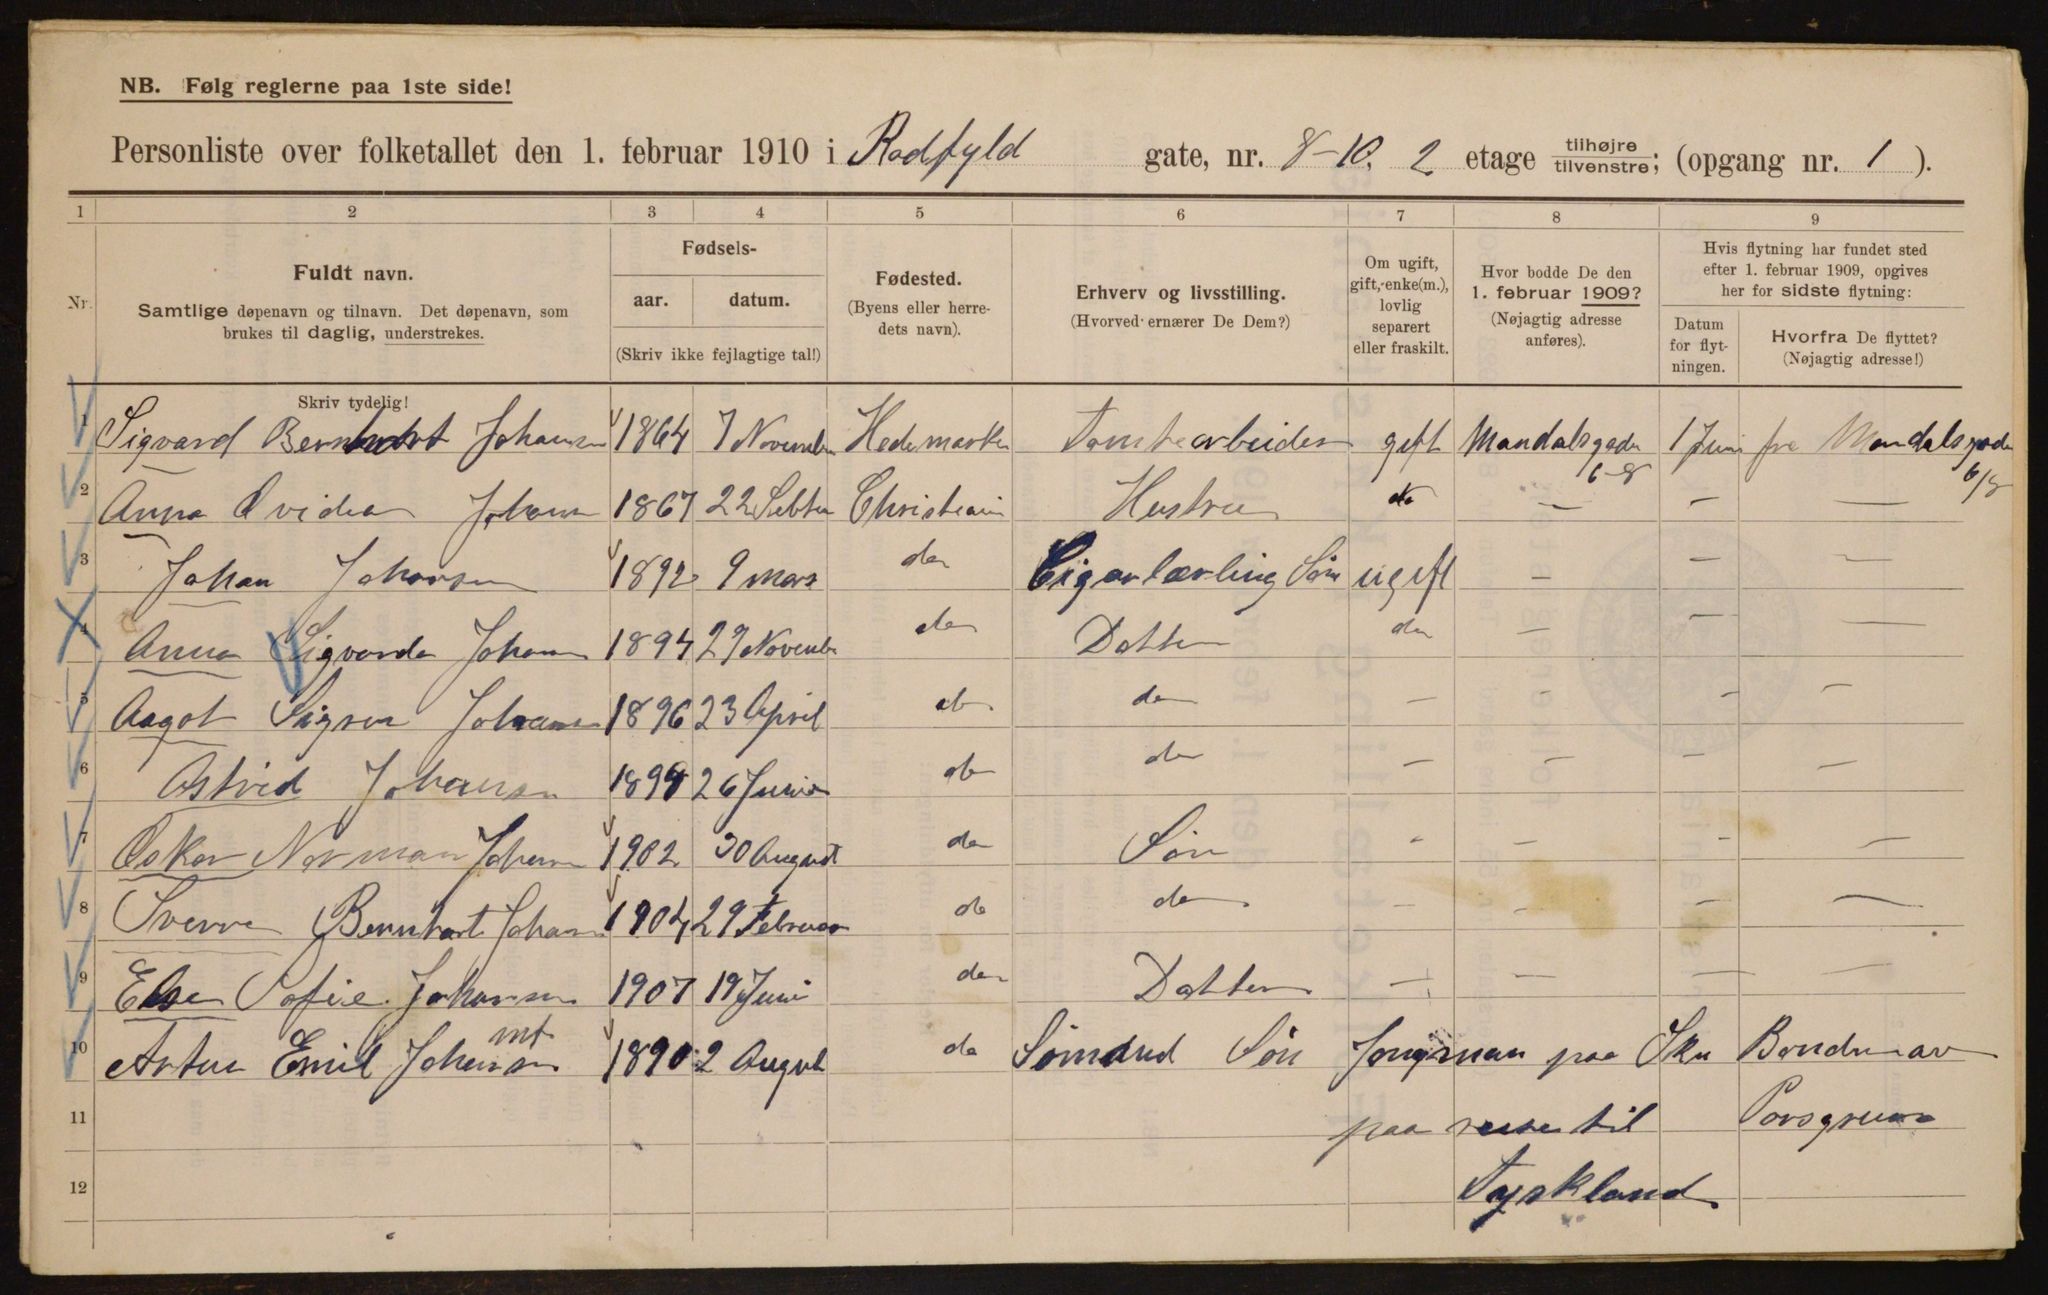 NB. Følg reglerne paa 1ste side!
Personliste over folketallet den 1. februar 1910 i Rodfyld gate, nr. 8-10. 2 etage tilhøjre tilvenstre; (opgang nr. 1 ).
1 2 3 4 5 6 7 8 9
Nr.
Fuldt navn.
Samtlige døpenavn og tilnavn. Det døpenavn, som
brukes til daglig, understrekes.
Skriv tydelig!
Fødsels-
aar. datum.
(Skriv ikke fejlagtige tal!)
Fødested.
(Byens eller herre-
dets navn).
Erhverv og livsstilling.
(Hvorved ernærer De Dem?)
Om ugift,
gift, enke(m.),
lovlig
separert
eller fraskilt.
Hvor bodde De den
1. februar 1909?
(Nøjagtig adresse
anføres).
Hvis flytning har fundet sted
efter 1. februar 1909, opgives
her for sidste flytning:
Datum
for flyt-
ningen.
Hvorfra De flyttet?
(Nøjagtig adresse!)
1 Sigvard Bernhart Johansen 1864 7 November Hedemarken Tomtearbeider gift Mandalsgade 6-8 1 Juni fra Mandalsgade 6/8
2 Anna Ovidea Johansen 1867 22 Sebtem Christiania Hustru do — — —
3 Johan Johansen 1892 9 mars do Cigarlærling Søn ugift — — —
4 Anna Sigvarda Johansen 1894 27 November do Datter do — — —
5 Aagot Sigrun Johansen 1896 23 April do do — — — —
6 Astrid Johansen 1898 26 Juni do do — — — —
7 Oskar Norman Johansen 1902 30 August do Søn — — — —
8 Sverre Bernhart Johansen 1904 29 Februar do do — — — —
9 Else Sofie Johansen 1907 19 Juni do Datter — — — —
10 Artur Emil Johansen mt 1890 2 August do Sømand Søn Jongman paa Sku Bonden av
11 paa reise til Porsgrund
12 Tyskland